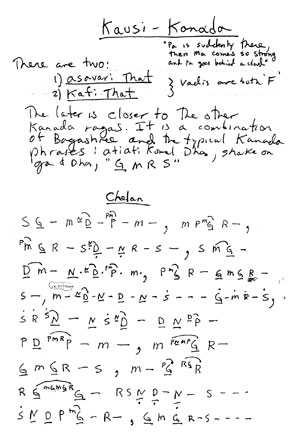 Kausi - Kanada
"Pa is suddenly there,
then Ma comes so strong
and Pa goes behind a cloud"
There are two:
1) asavari That
2) Kafi That
} vadis are both 'F'
The later is closer to the other
Kanada ragas. It is a combination
of Bagashree and the typical Kanada
phrases: atiati Komal Dha, shake on
ga & Dha, "G m R S"
Chalan
S G - m N D - Pm P - m - , m P m G R - ,
Pm m G R - S N D - N R - S - , S m G -
D m - N - D . P . m . , P m G R - G m G R -
S - , m - N D - N - D - N - S - - - G - m R - S ,
S R S N - N S N D - D N D P -
P D P m R P - m - , m P m m P G R -
G m G R - S , m - P G R S R
R G m G m G R G - R S N D - N - S - - -
S N D P m G - R - , G m G R - S - - - -